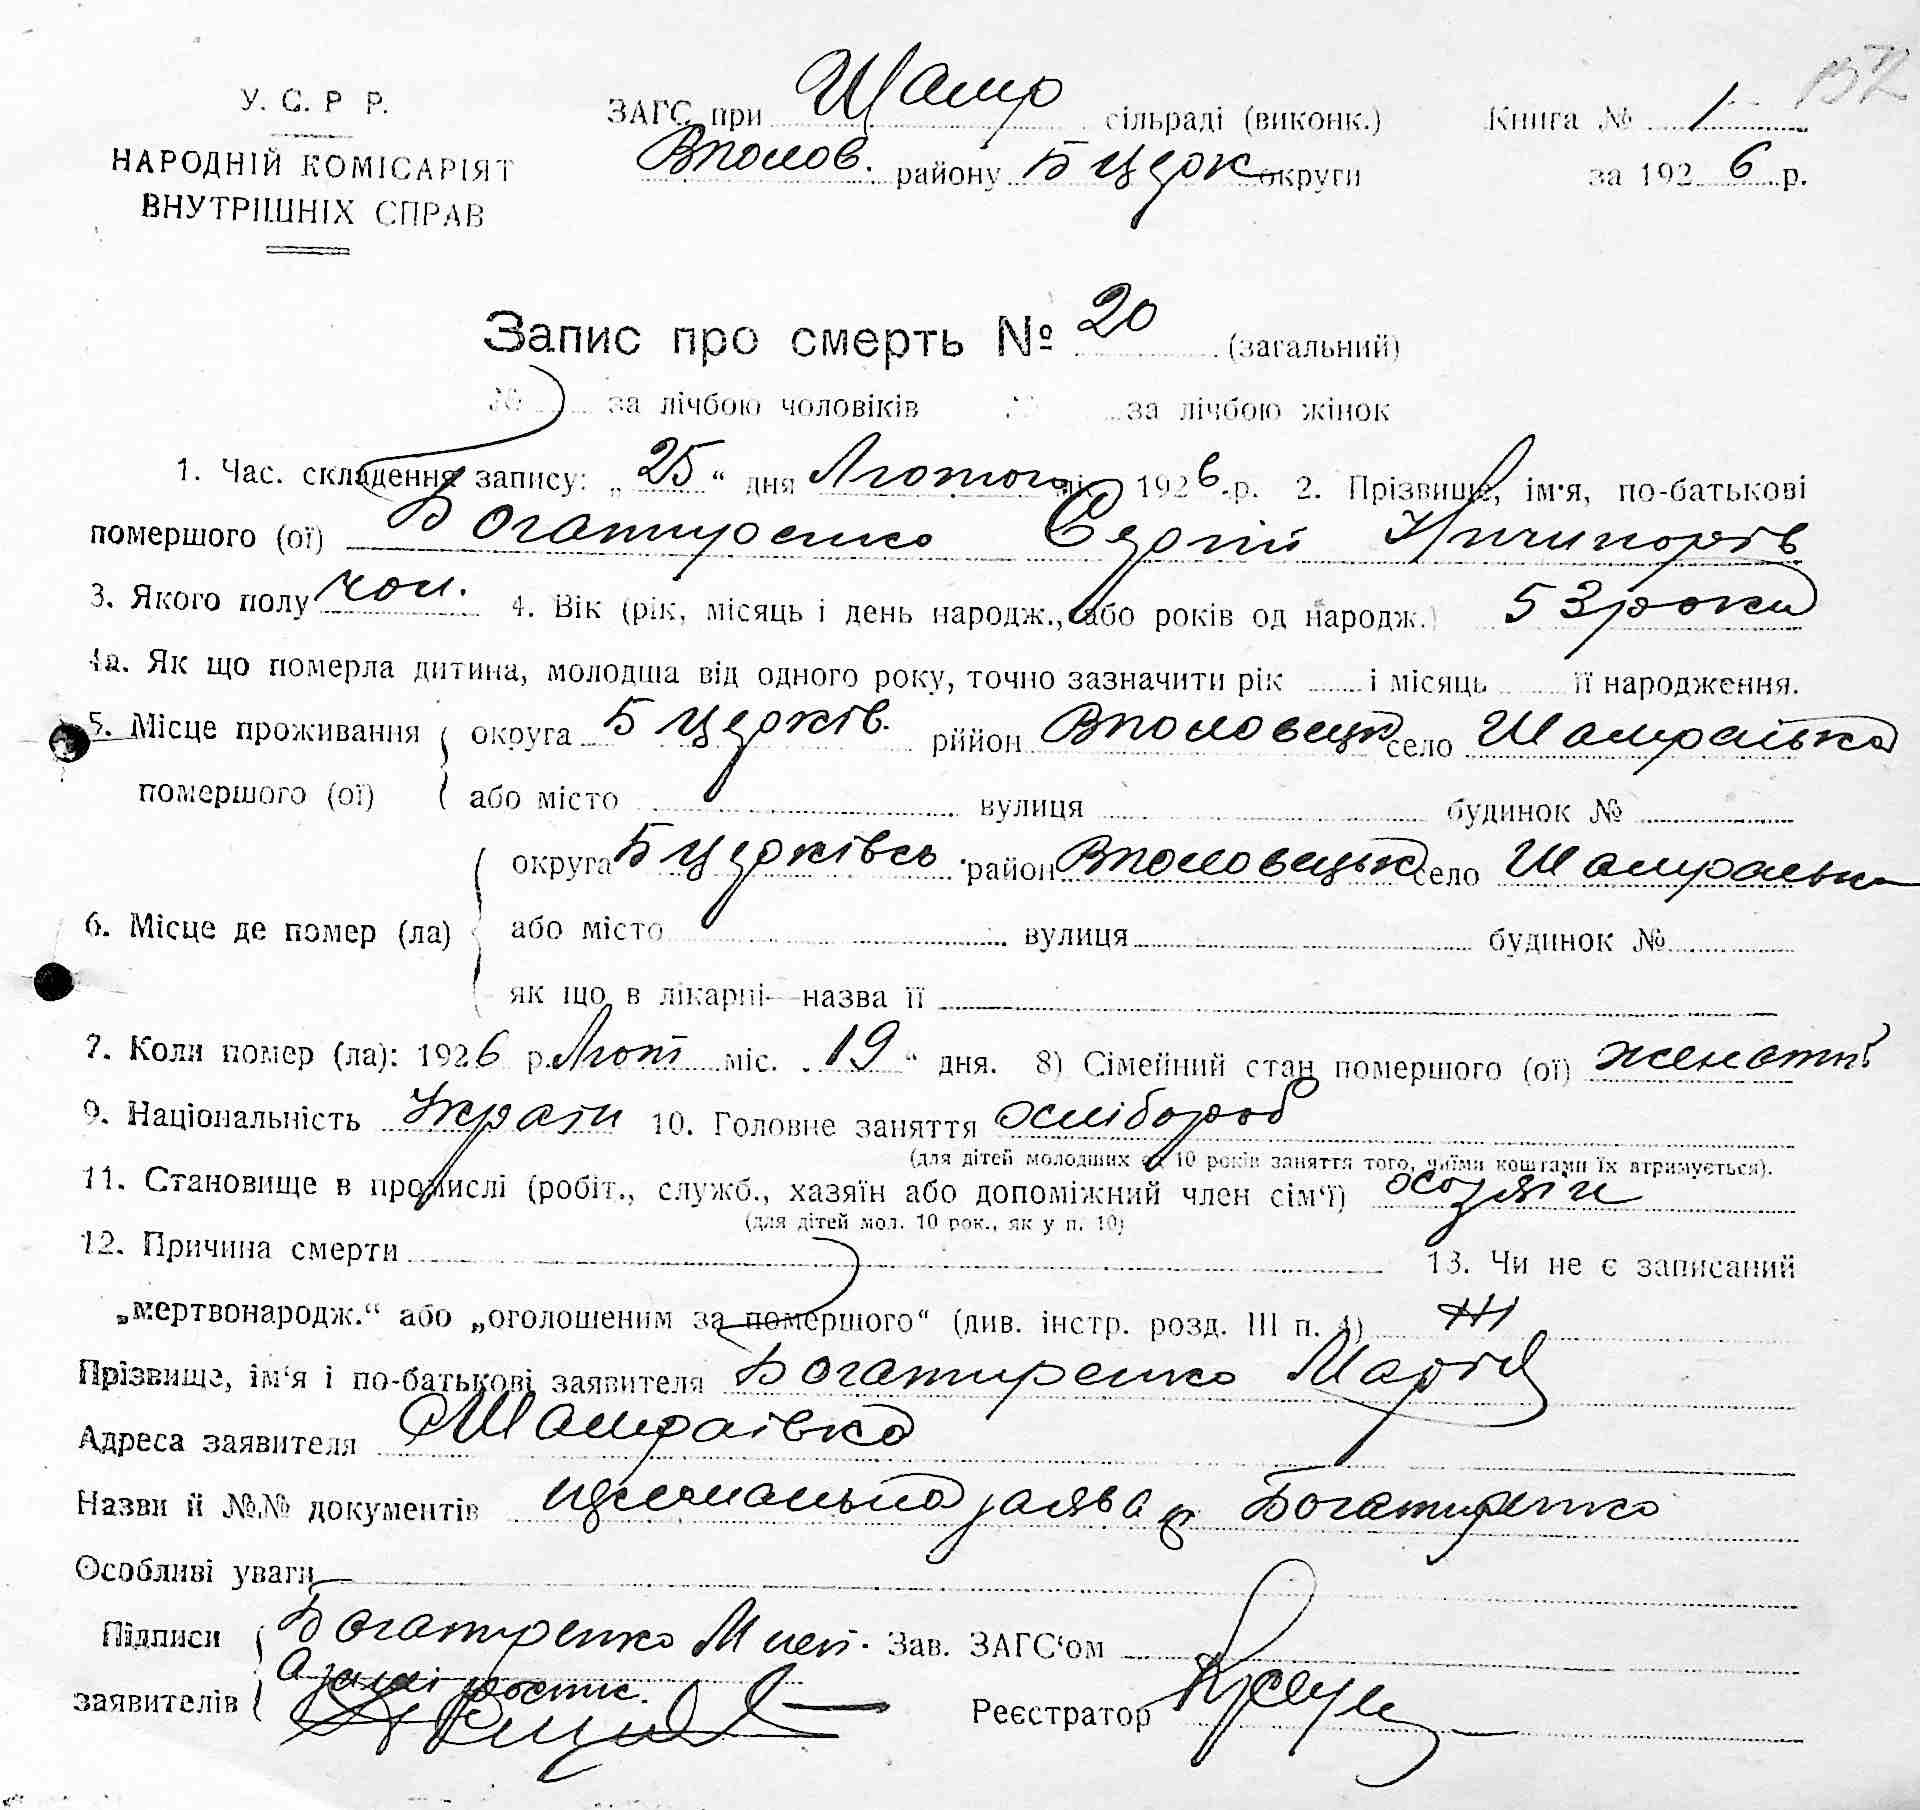 У. С. Р. Р.
НАРОДНІЙ КОМІСАРІЯТ
ВНУТРІШНІХ СПРАВ
ЗАГС при Шамр сільраді (виконк.)
Вполов. району Бцерк округи
Книга № 1
за 1926 р.
Запис про смерть № 20 (загальний)
№ за лічбою чоловіків № за лічбою жінок
1. Час. складення запису: „25“ дня Лютого міс. 1926.р. 2. Прізвище, ім'я, по-батькові
помершого (ої) Богатиренко Сергій Ничипорів
3. Якого полу чол. 4. Вік (рік, місяць і день народж., або років од народж.) 53 роки
4а. Як що померла дитина, молодша від одного року, точно зазначити рік і місяць її народження.
5. Місце проживання округа Бцерків. рййон Вполовецьк село Шамраївка
помершого (ої) або місто вулиця будинок №
округа Бцерківсь. район Вполовецьк село Шамраївка
6. Місце де помер (ла) або місто вулиця будинок №
як що в лікарні—назва її
7. Коли помер (ла): 1926 р. Лют міс. „19“ дня. 8) Сімейний стан помершого (ої) женатий
9. Національність Україн 10. Головне заняття хлібороб
(для дітей молодших од 10 років заняття того, чиїми коштами їх втримується).
11. Становище в промислі (робіт., служб., хазяїн або допоміжний член сім‘ї) хозяїн
(для дітей мол. 10 рок., як у п. 10)
12. Причина смерти 13. Чи не є записаний
„мертвонародж.“ або „оголошеним за помершого“ (див. інстр. розд. III п. 4) Ні
Прізвище, ім‘я і по-батькові заявителя Богатиренко Марія
Адреса заявителя Шамраївка
Назви й №№ документів заява Богатиренко
Особливі уваги
Підписи Богатиренко Зав. ЗАГС‘ом
заявителів Реєстратор